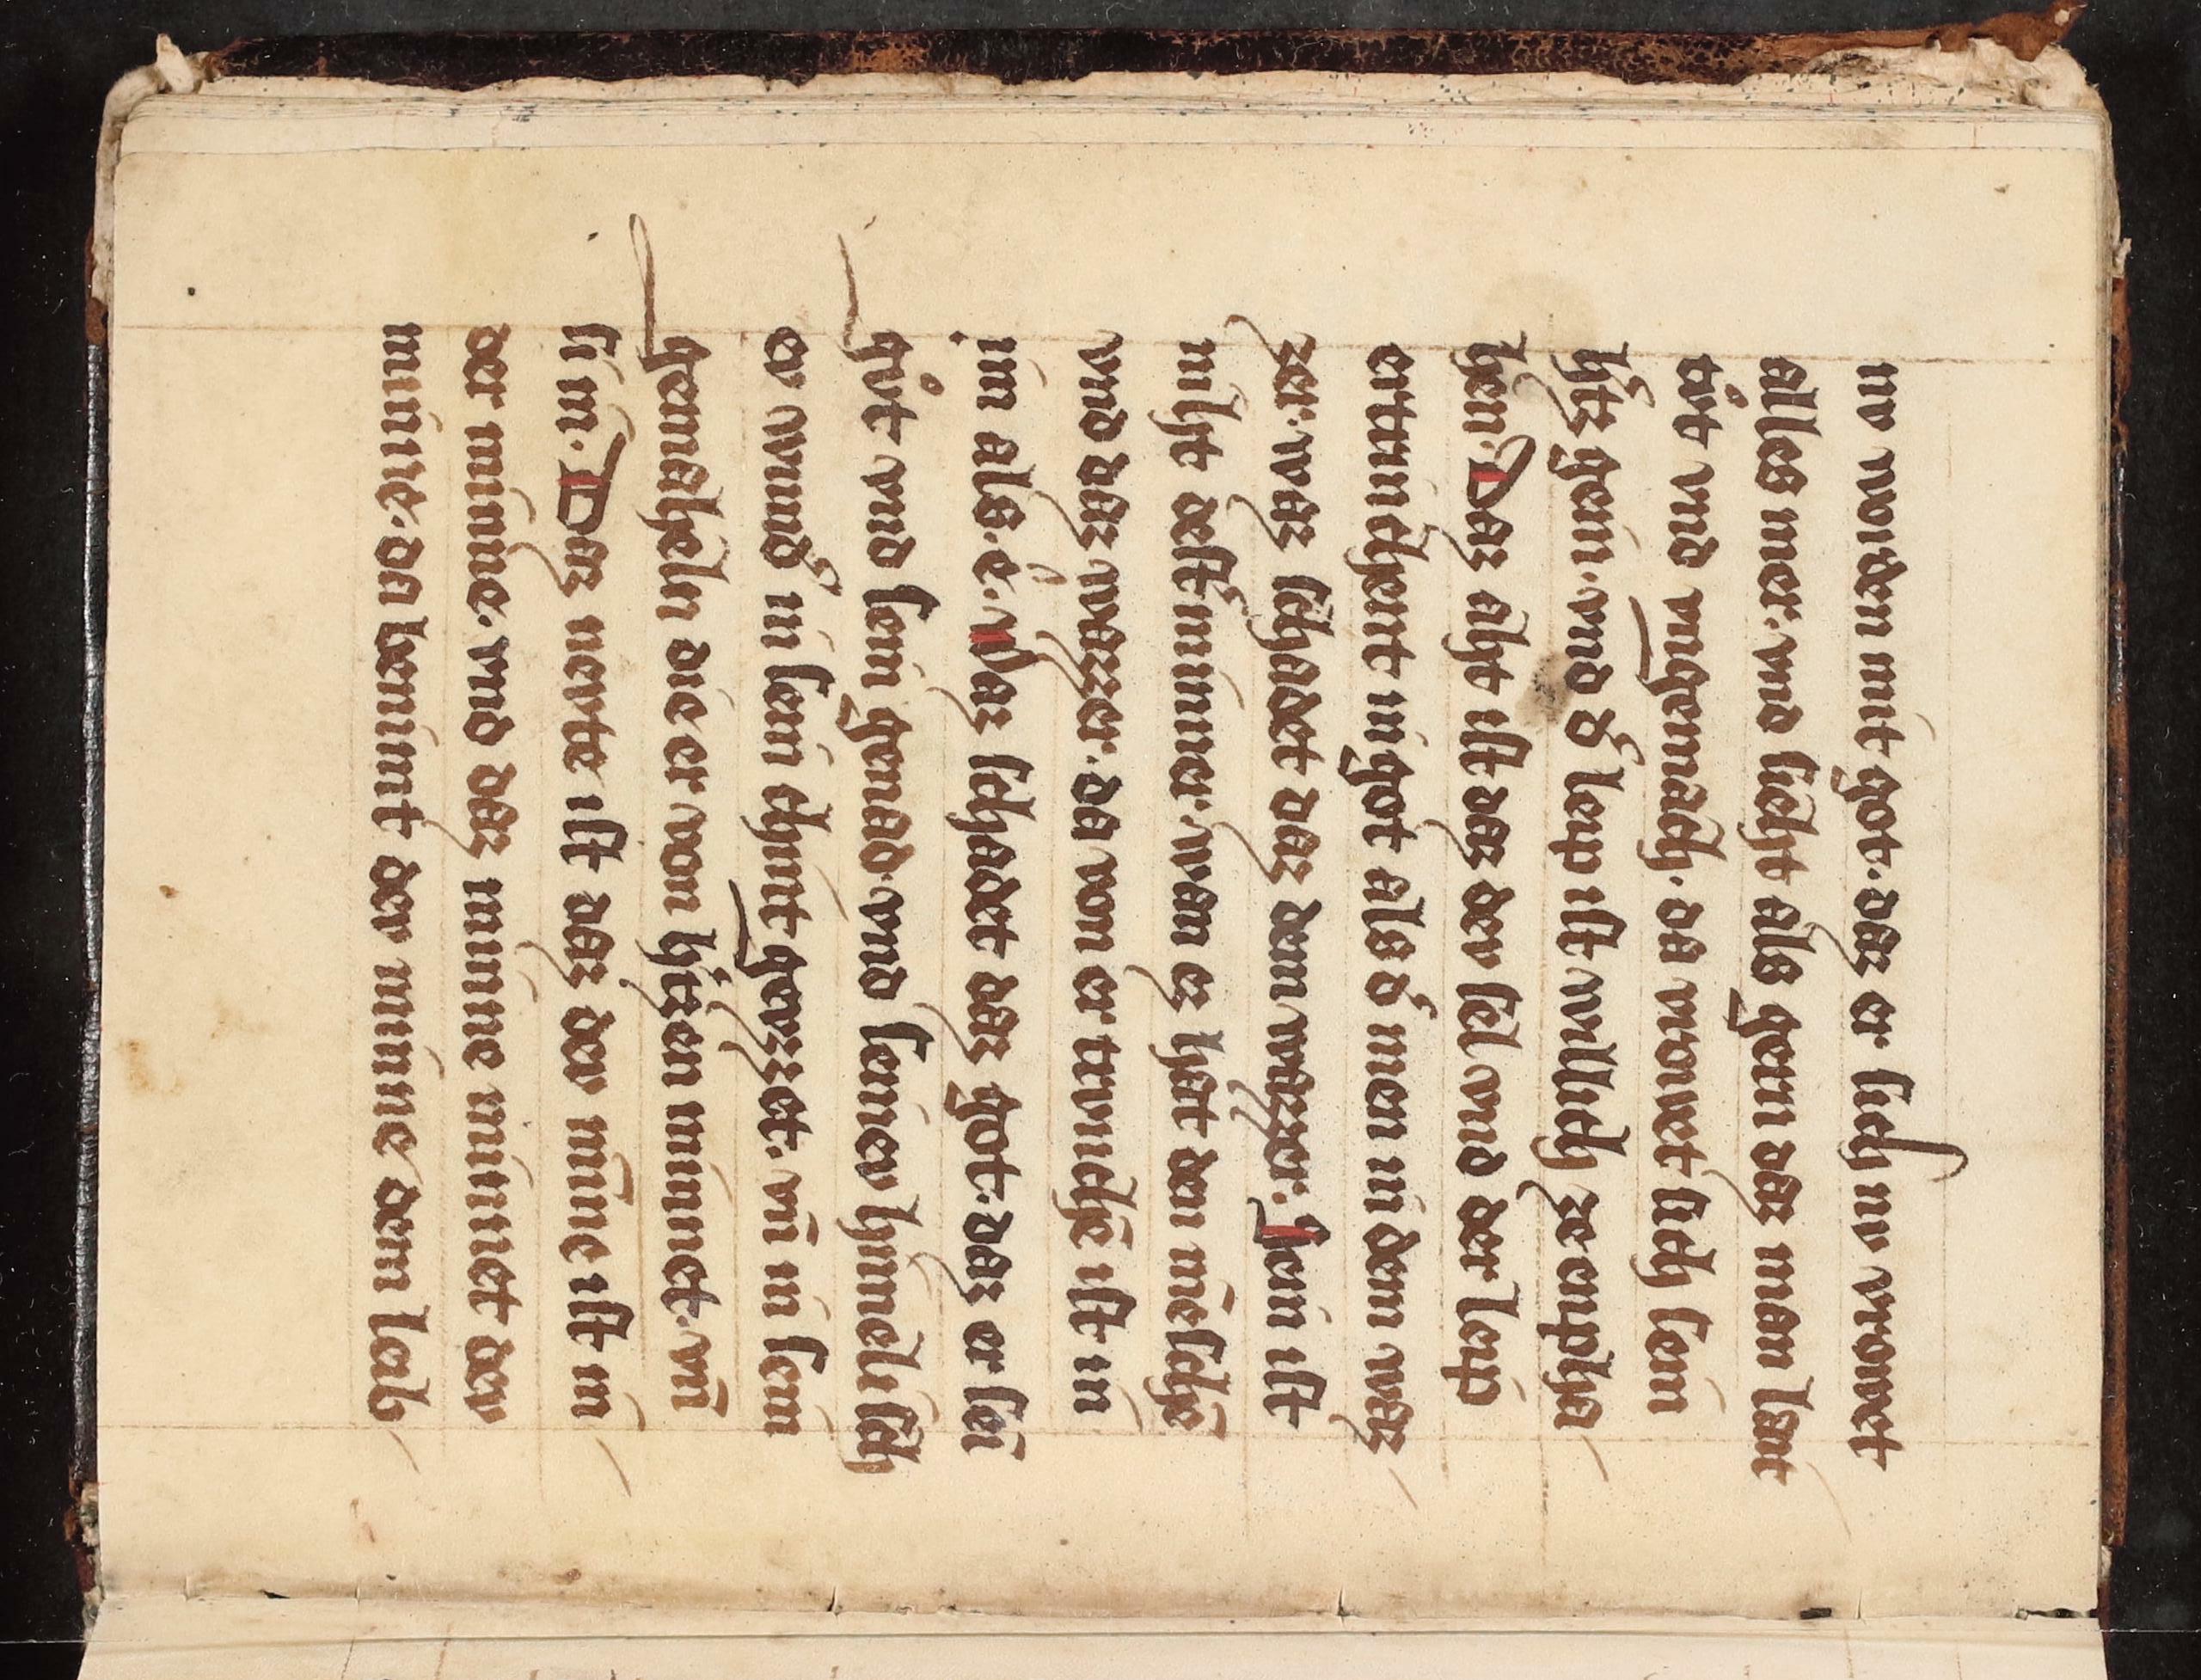 nv wurden mit got. daz er sich nv vrowet
alles mer. vnd sicht als gern daz man lant
tvͦt vnd vngemach. da vrowet sich sein
h̾tz gein. vnd d̾ leip ist willich ze enpha
hen. Daz aht ist daz dev sel vnd der leip
ertrunchent in got als d̾ mer in dem waz
zer. waz schadet daz dem wazzer. Sein ist
niht dest minner. wan ez hat den mēsch̄e
vnd daz wazzer. da von er trunchē ist in
im als. ê. Waz schadet daz got. daz er sei
gvͦt vnd sein genad. vnd seinev himelisch
ev wund̾ in sein chint gevzzet. vn̄ in sein
gemaheln die er von h̾tzen minnet. vn̄
si in. Daz nevte ist daz dev minne ist in
der minne. vnd daz minne minnet dev
minne. da benimt dev minne dem leib